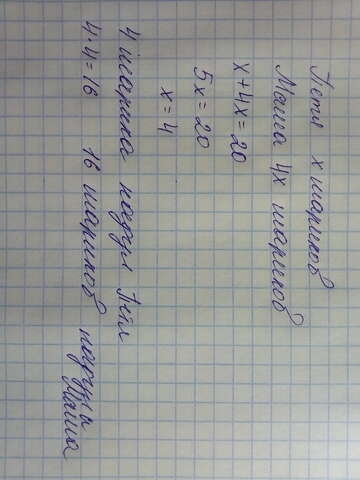 Петя х шариков
Маша 4х шариков
х+4х=20
5х=20
х=4
4 шарика надул Петя
4·4=16 16 шариков надула Маша